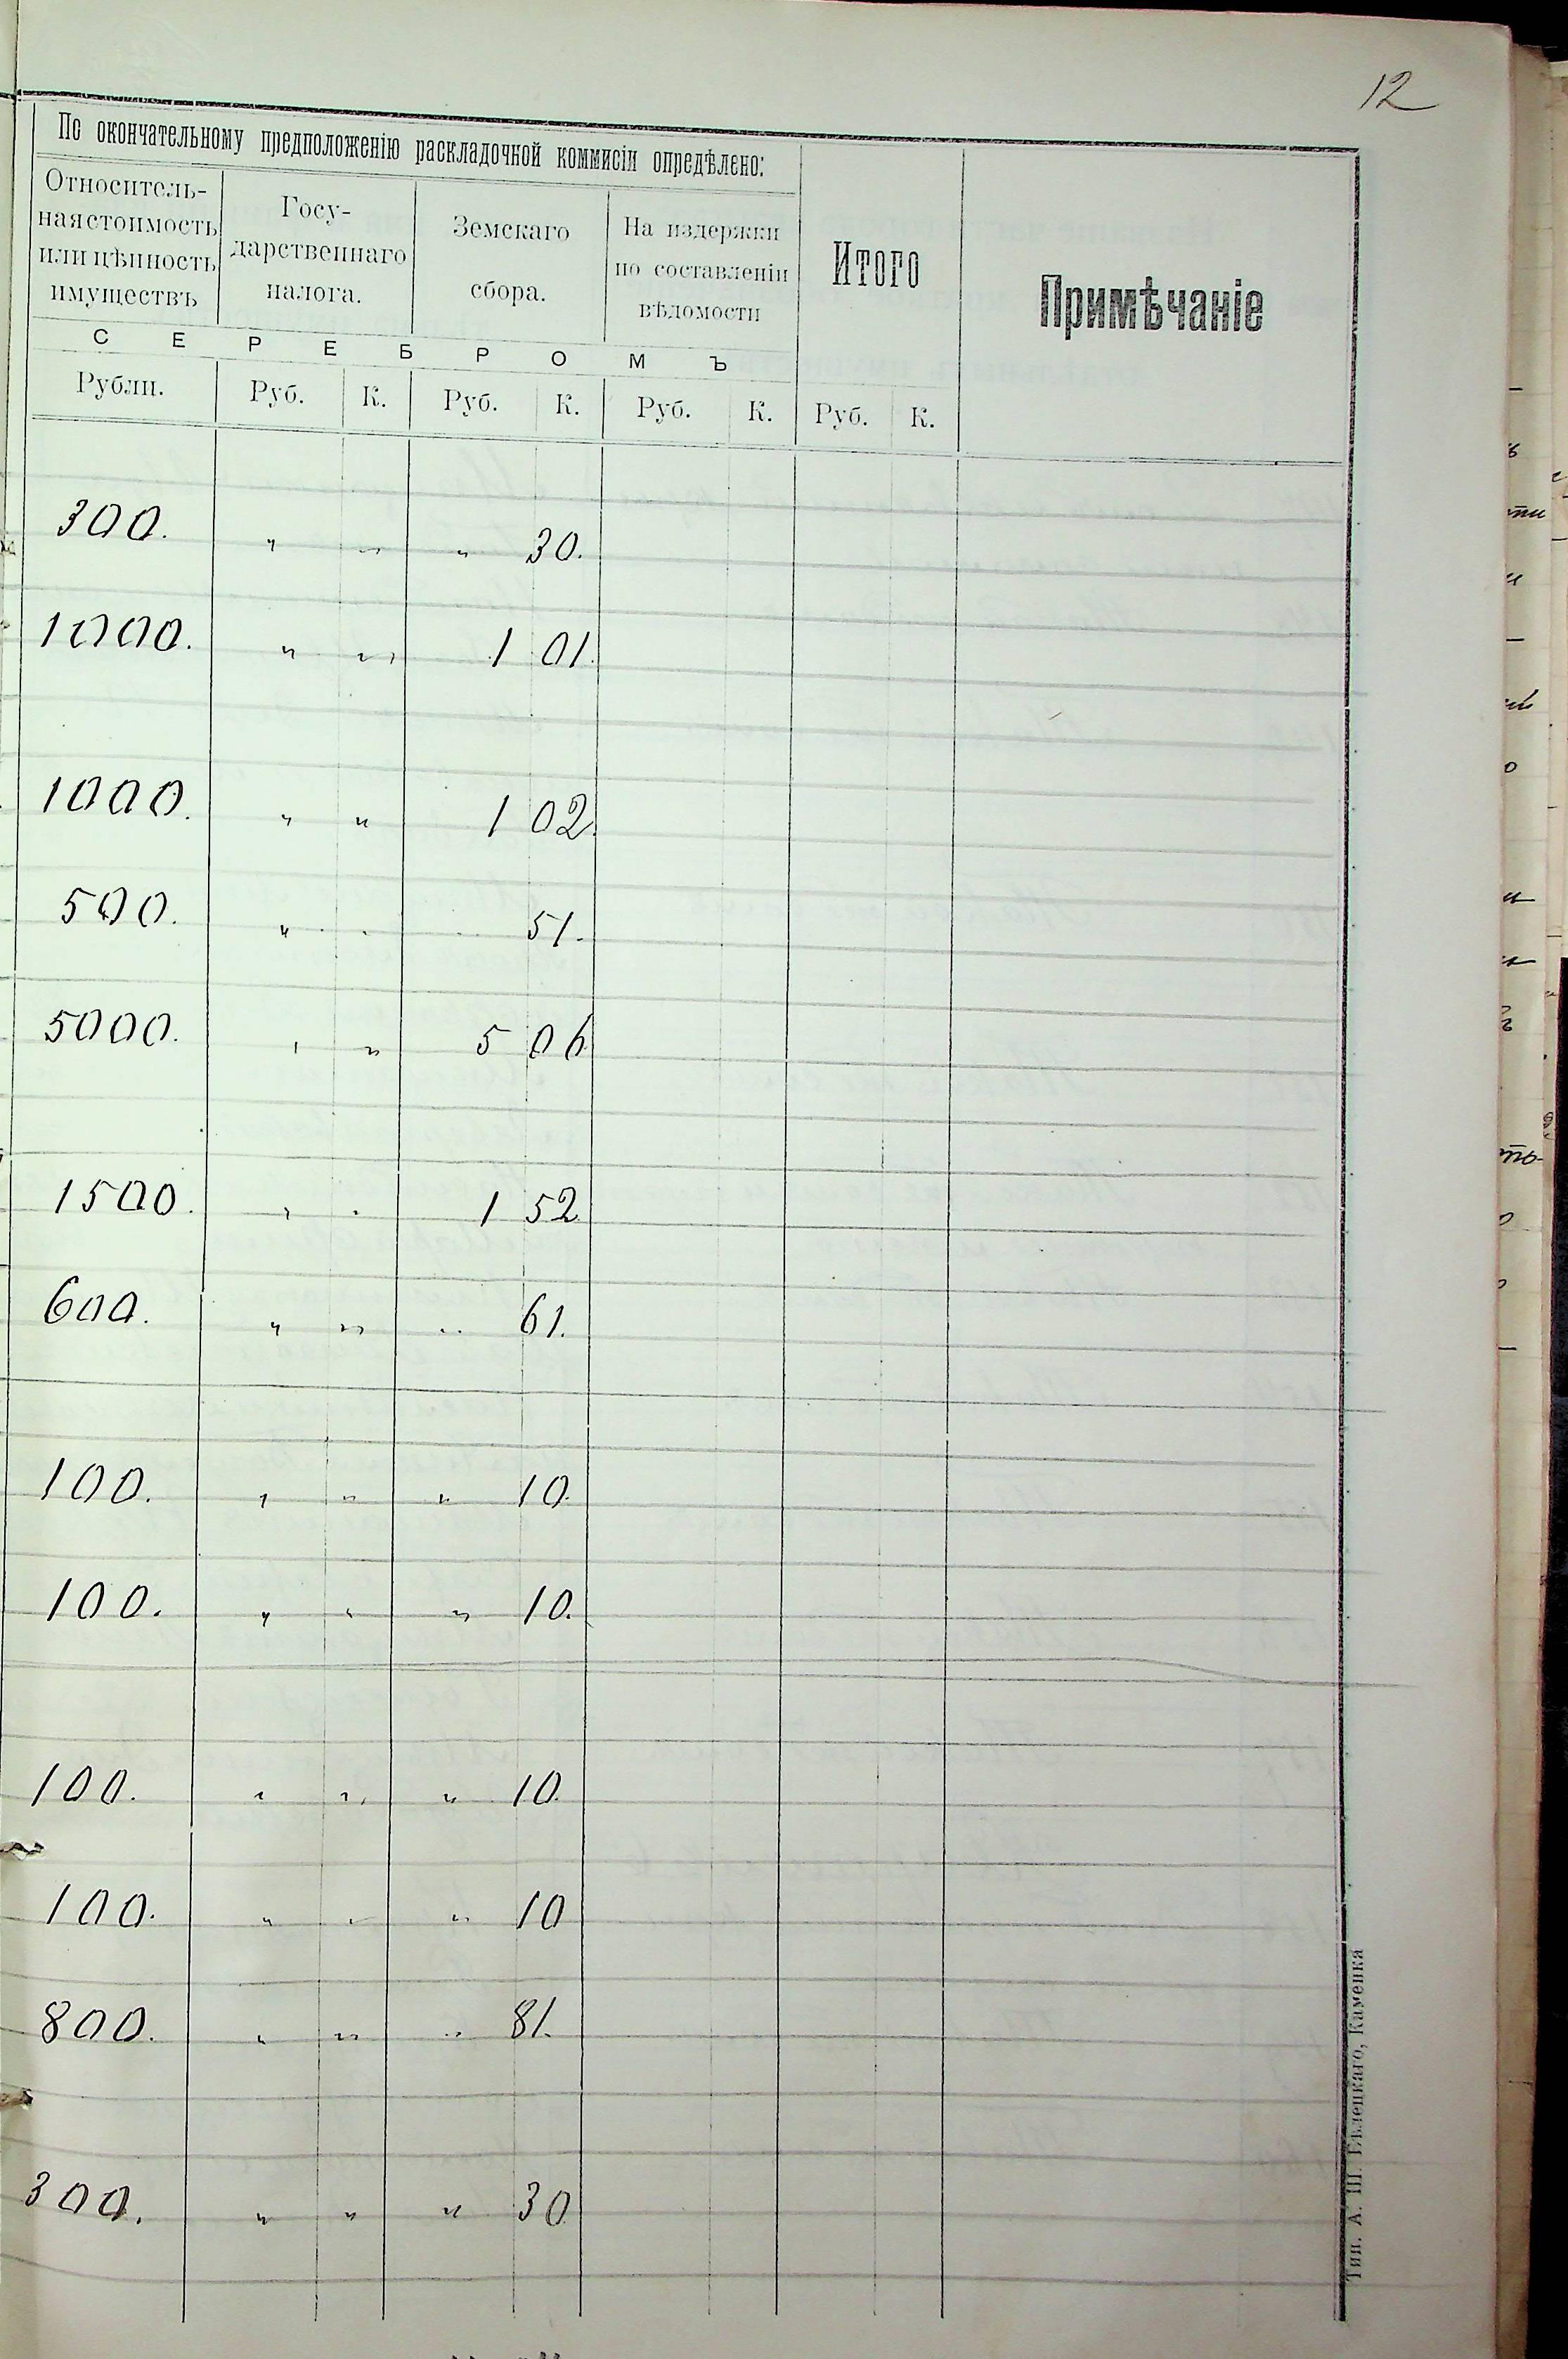 12
По окончательному предположенію раскладочной коммисіи опредѣлено:
Относитель-
ная стоимость
или цѣнность
имуществъ
Госу-
дарственнаго
налога.
Земскаго
сбора.
На издержки
по составленіи
вѣдомости
Итого
Примѣчаніе
С Е Р Е Б Р О М Ъ
Рубли. Руб. К. Руб. К. Руб. К. Руб. К.
300. " " " 30.
1000. " " 1 01.
1000. " " 1 02.
500. " " " 51.
5000. " " 5 06
1500. " " 1 52.
600. " " " 61.
100. " " " 10.
100. " " " 10.
100. " " " 10.
100. " " " 10
800. " " " 81.
300. " " " 30
Тип. А. Ш. Бѣлецкаго, Каменка